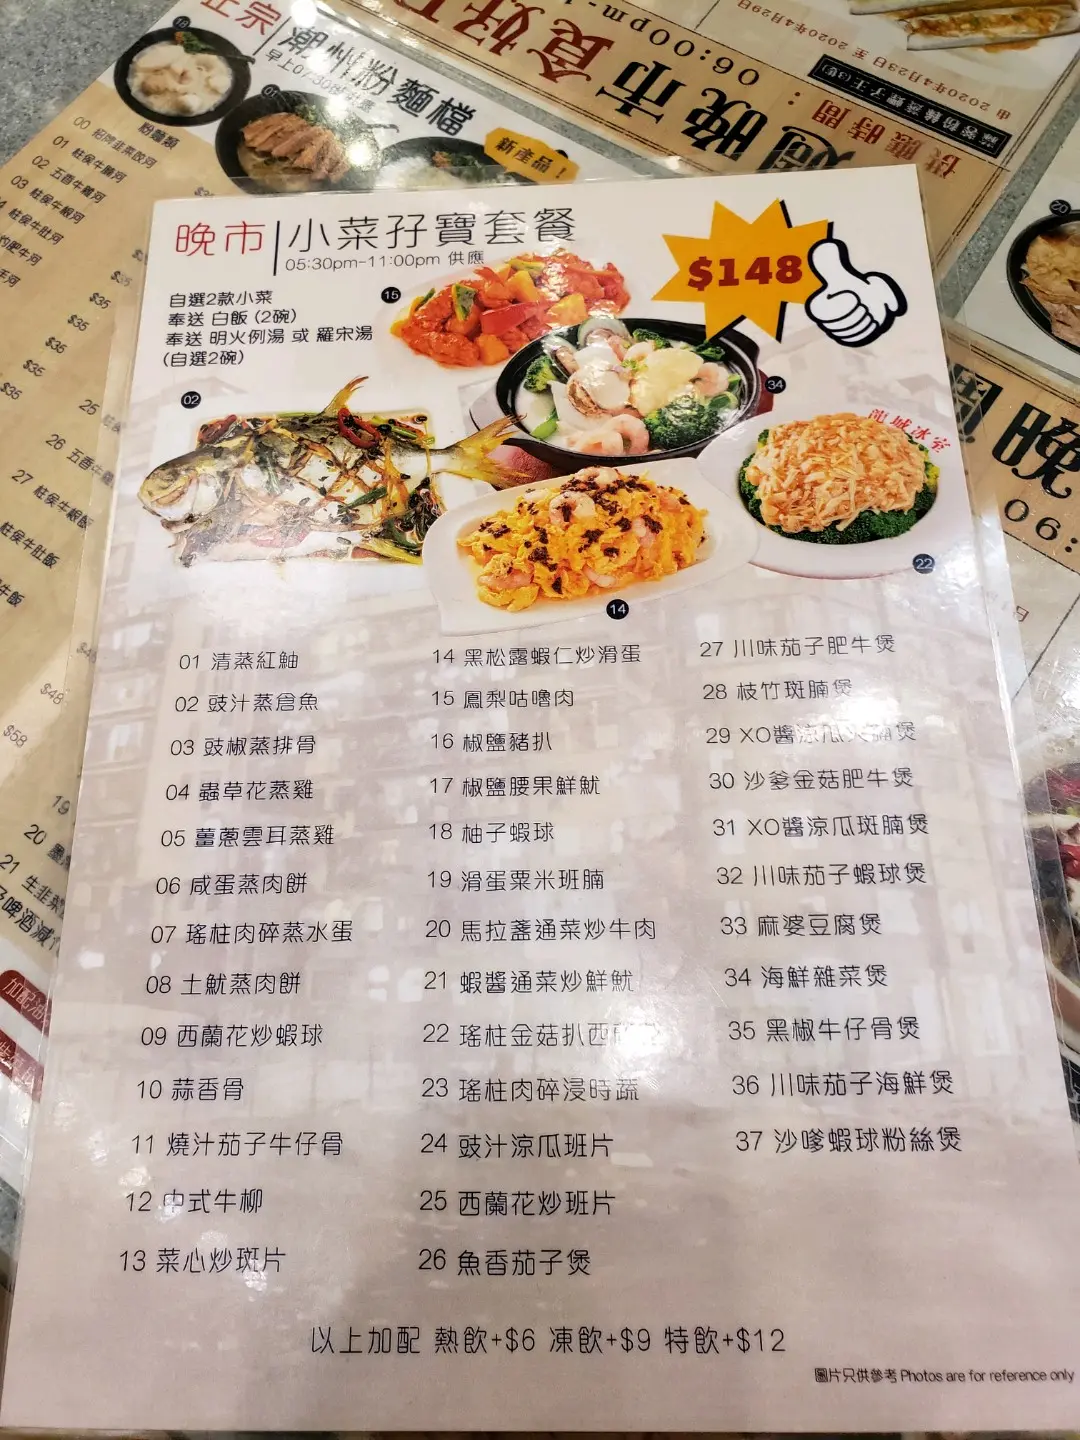 正宗
潮州粉麵檔
新產品！
粉麵類
01 柱侯牛腩河
03 柱侯牛𦟌河
$35
$35
$35
$35
$35
$48
$58
晚市
供應時間：
06:00pm-1
由 2020年4月23日 至 2020年4月29日
晚市 小菜孖寶套餐
05:30pm-11:00pm 供應
$148
自選2款小菜
奉送 白飯 (2碗)
奉送 明火例湯 或 羅宋湯
(自選2碗)
15
34
02
龍城冰室
22
14
01 清蒸紅鮋
02 豉汁蒸倉魚
03 豉椒蒸排骨
04 蟲草花蒸雞
05 薑蔥雲耳蒸雞
06 咸蛋蒸肉餅
07 瑤柱肉碎蒸水蛋
08 土魷蒸肉餅
09 西蘭花炒蝦球
10 蒜香骨
11 燒汁茄子牛仔骨
12 中式牛柳
13 菜心炒斑片
14 黑松露蝦仁炒滑蛋
15 鳳梨咕嚕肉
16 椒鹽豬扒
17 椒鹽腰果鮮魷
18 柚子蝦球
19 滑蛋粟米班腩
20 馬拉盞通菜炒牛肉
21 蝦醬通菜炒鮮魷
22 瑤柱金菇扒西
23 瑤柱肉碎浸時蔬
24 豉汁涼瓜班片
25 西蘭花炒班片
26 魚香茄子煲
27 川味茄子肥牛煲
28 枝竹斑腩煲
29 XO醬涼瓜火腩煲
30 沙爹金菇肥牛煲
31 XO醬涼瓜斑腩煲
32 川味茄子蝦球煲
33 麻婆豆腐煲
34 海鮮雜菜煲
35 黑椒牛仔骨煲
36 川味茄子海鮮煲
37 沙嗲蝦球粉絲煲
以上加配 熱飲+$6 凍飲+$9 特飲+$12
圖片只供參考 Photos are for reference only